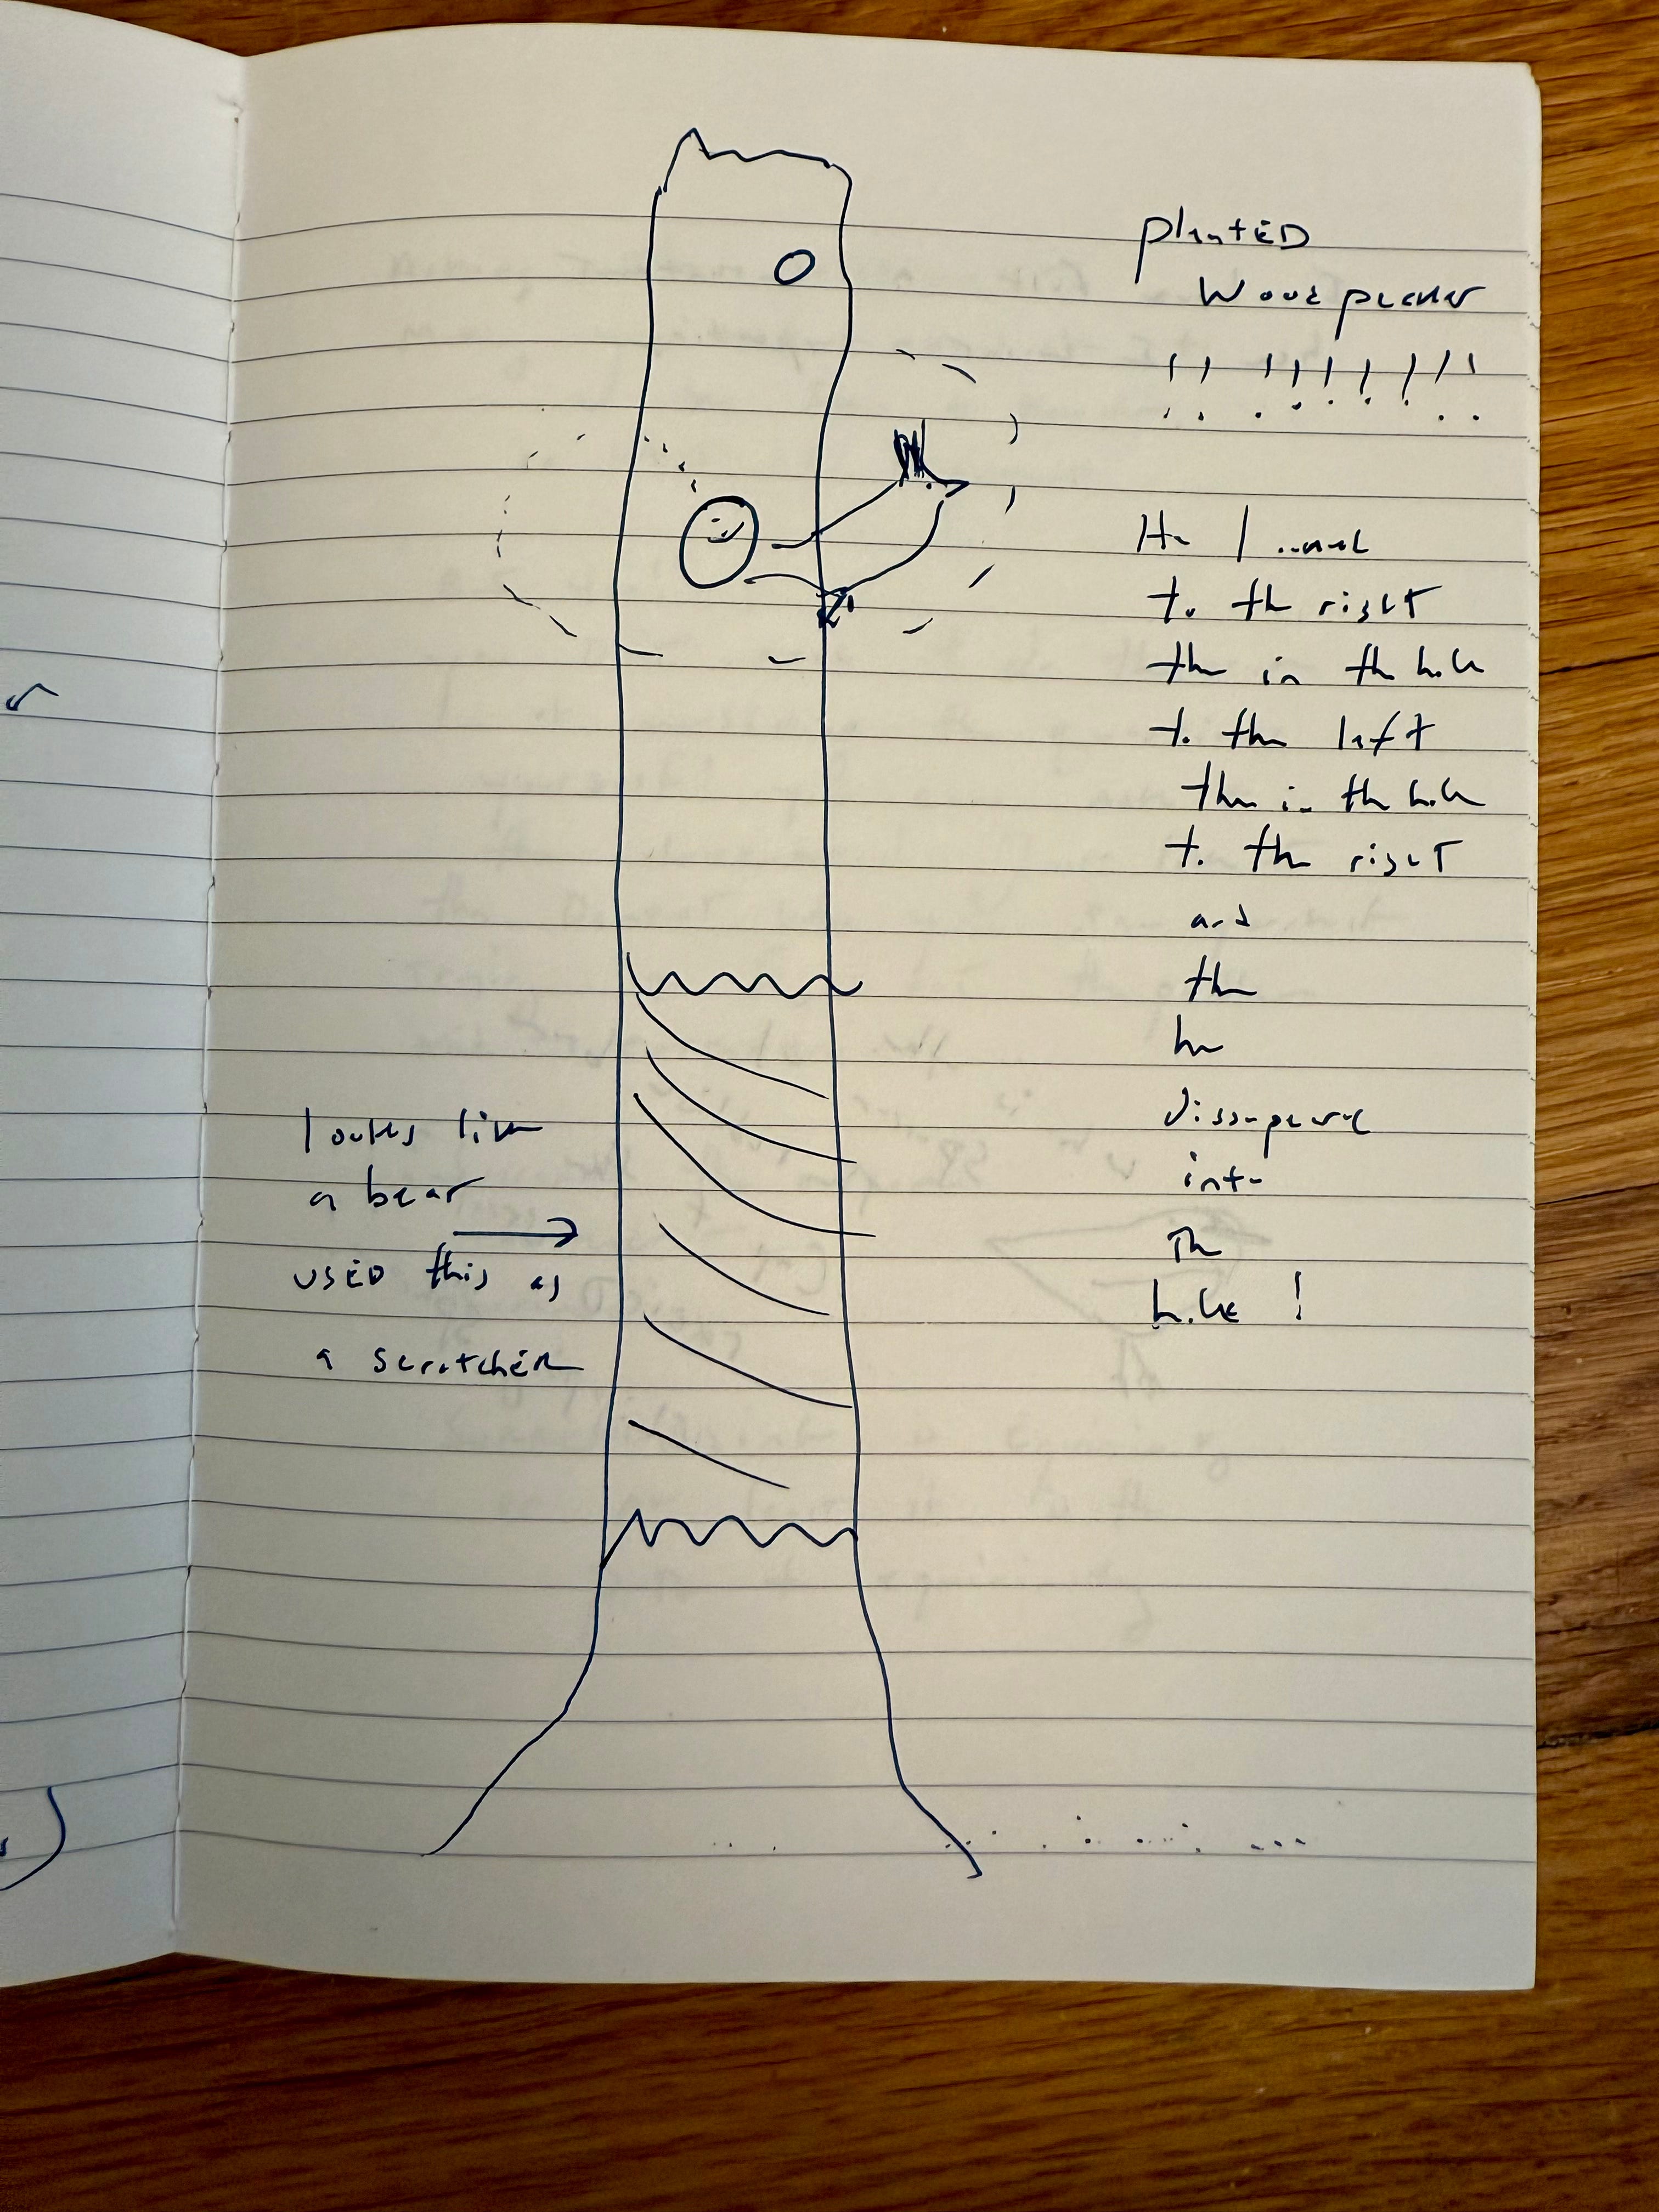 plantED
Woodpecker
!! !!!!!!!
He looked
to the right
then in the hole
to the left
then in the hole
to the right
and
then
he
dissapeared
into
The
hole !
lookes like
a bear
→
USED this as
a scratcher